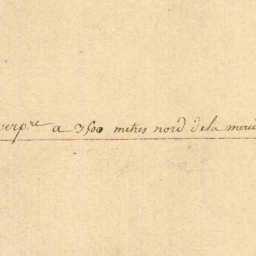 verp.re a 2500 metres nord de la meri